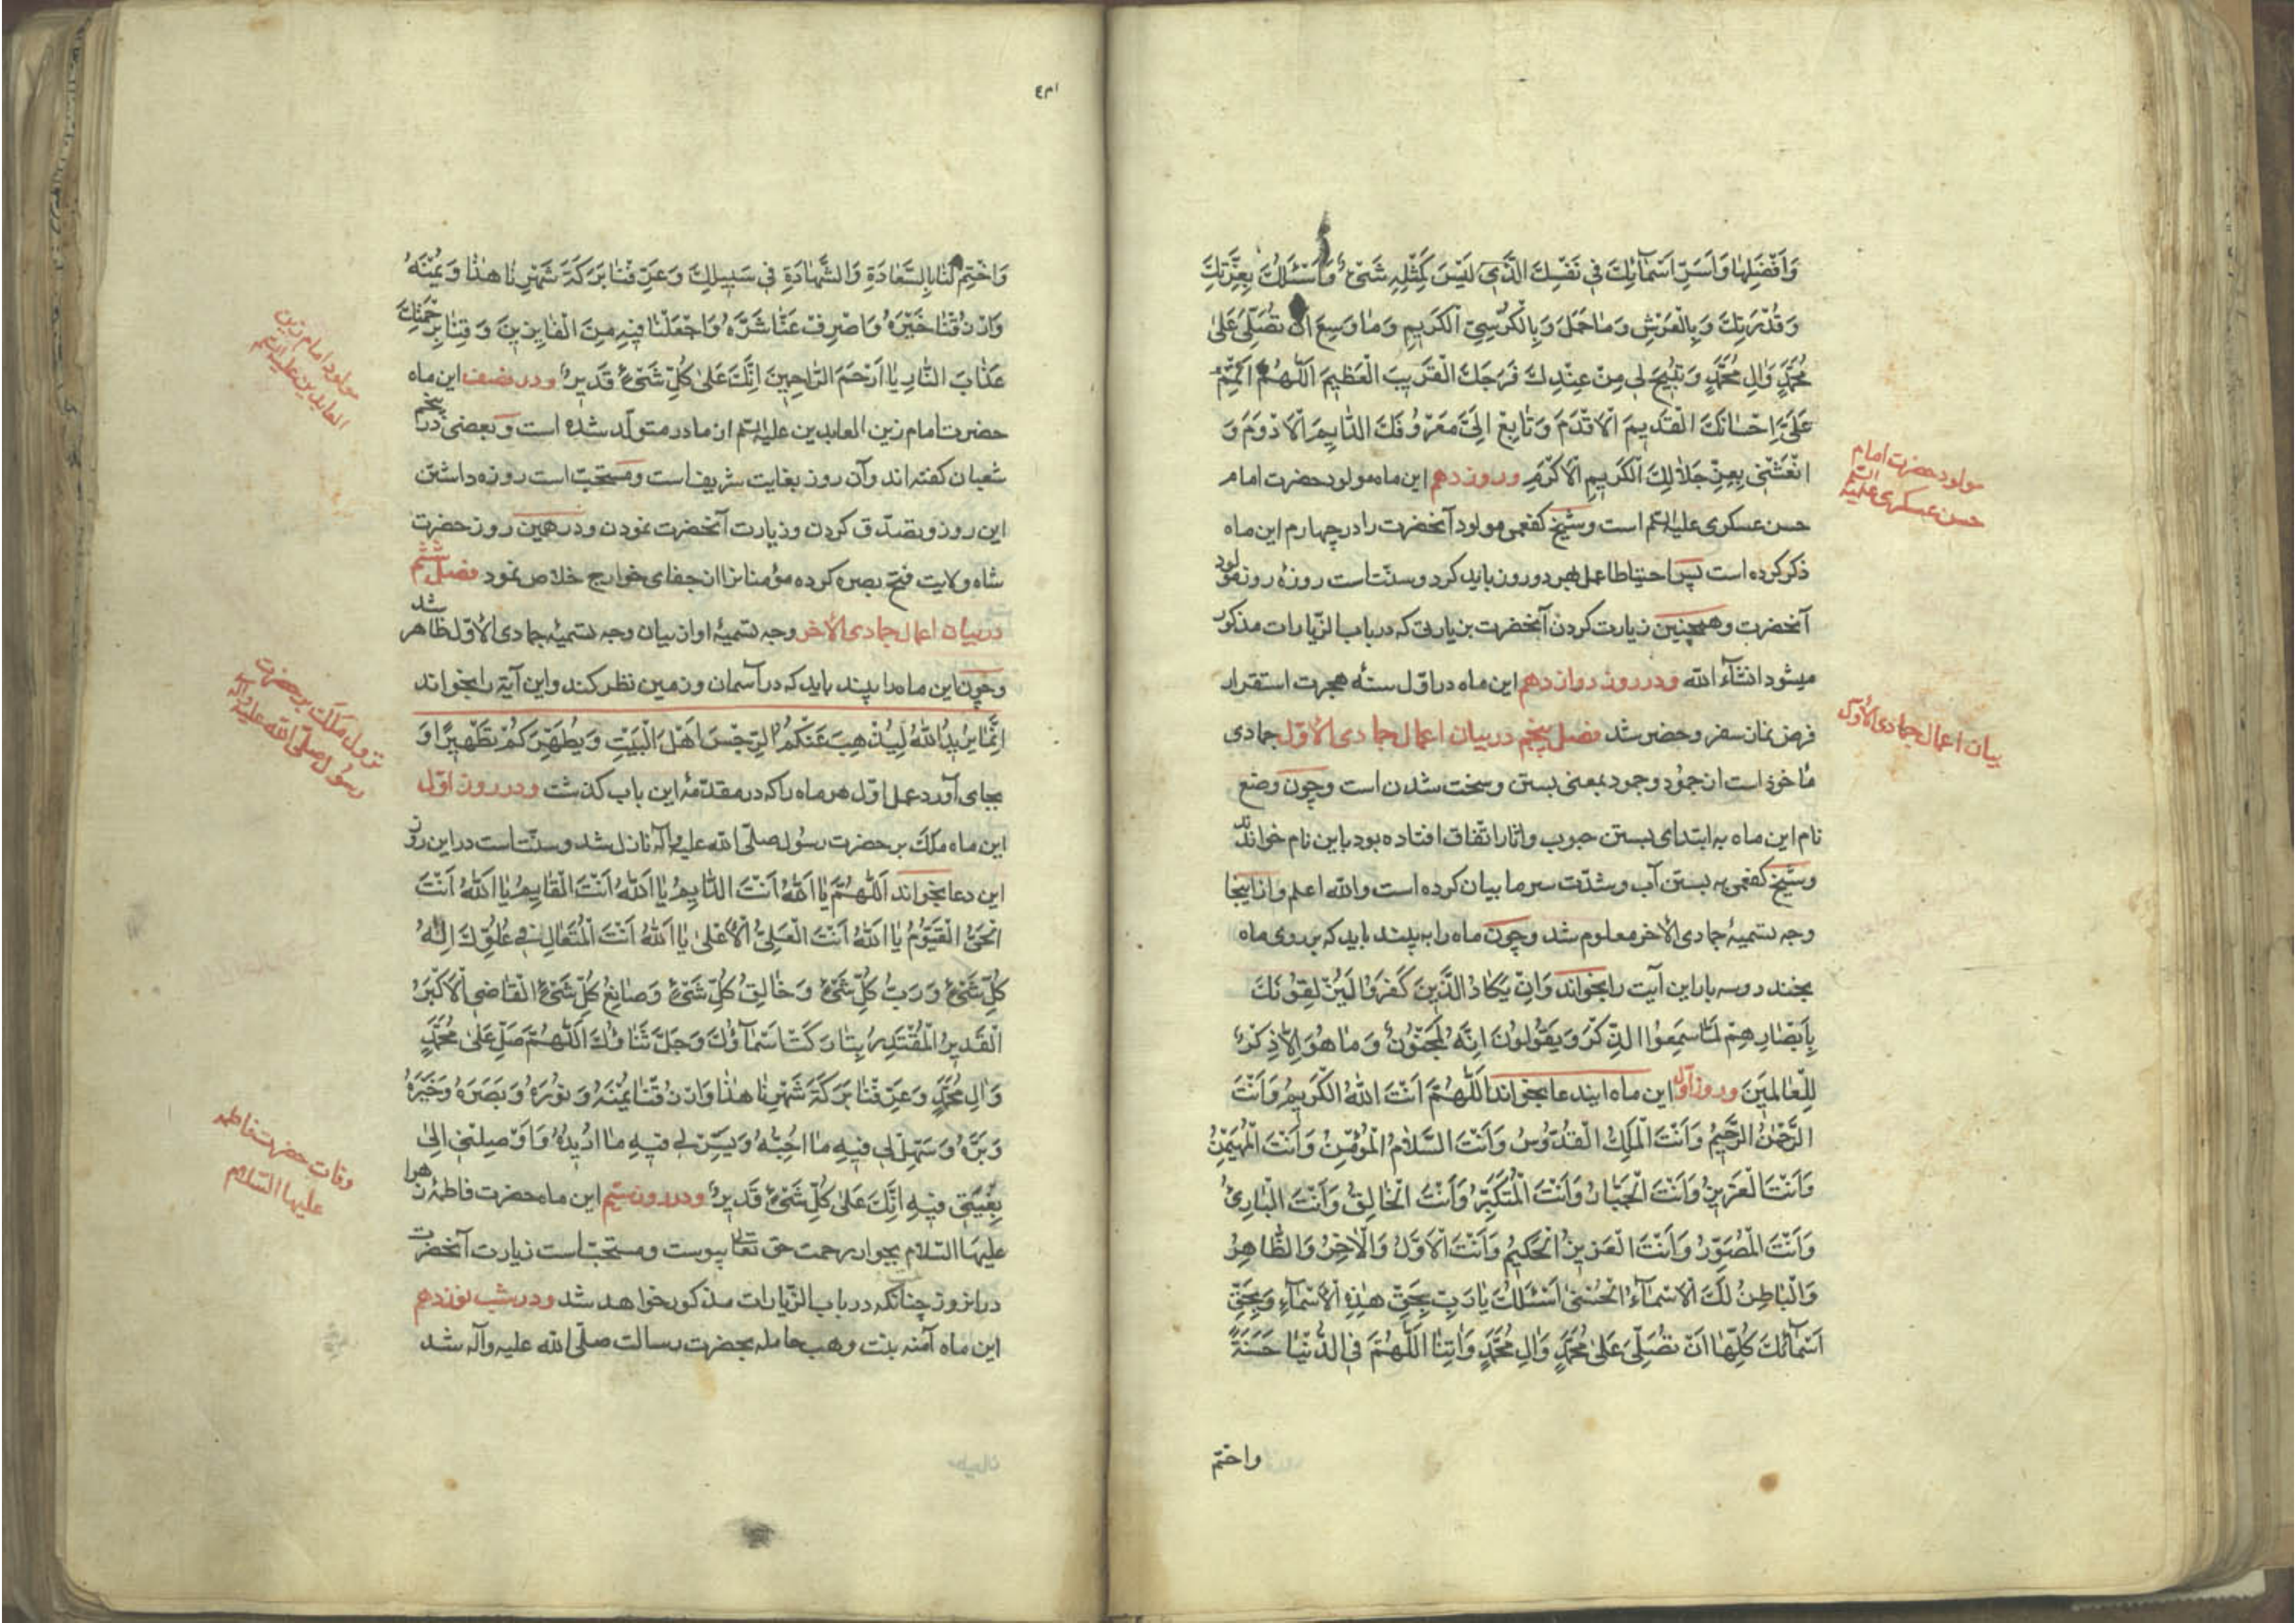 وَاَفْضَلِهٰا وَاَسَرِّ اَسْمٰائِكَ فى نَفْسِكَ الَّذى لَيْسَ كَمِثْلِهِ شَىْءٌ وَاَسْئَلُكَ بِعِزَّتِكَ
وَقُدْرَتِكَ وَبِالْعَرْشِ وَمٰا حَمَلَ وَبِالْكُرْسِىِّ الْكَريمِ وَمٰا وَسِعَ اَنْ تُصَلِّىَ عَلىٰ
مُحَمَّدٍ وَاٰلِ مُحَمَّدٍ وَتُبيحَ لى مِنْ عِنْدِكَ فَرَجَكَ الْقَريبَ الْعَظيمَ اَللّٰهُمَّ اَتْمِمْ
عَلَىَّ اِحْسٰانَكَ الْقَديمَ الْاَقْدَمَ وَتٰابِعْ اِلَىَّ مَعْرُوفَكَ الدّٰايِمَ الْاَدْوَمَ وَ
انْعَشْنى بِعِزِّ جَلاٰلِكَ الْكَريمِ الْاَكْرَمِ و روز دهم اين ماه مولود حضرت امام
حسن عسكرى عليه السّلم است و شيخ كفعمى مولود آنحضرت را در چهارم اين ماه
ذكر كرده است پس احتياطا عمل بهر دو روز بايد كرد و سنّت است روزهٔ روز مولود
آنحضرت و همچنين زيارت كردن آنحضرت بزيارتى كه در باب الزّيارات مذكور
ميشود انشآء الله و در روز دوازدهم اين ماه در اوّل سنهٔ هجرت استقرار
فرض نماز سفر و حضر شد فصل پنجم در بيان اعمال جمادى الاوّل جمادى
ماخوذ است از جمود و جمود بمعنى بستن و سخت شدن است و چون وضع
نام اين ماه به ابتداى بستن حبوب و اثمار اتّفاق افتاده بود باين نام خواندند
و شيخ كفعمى به بستن آب و شدّت سرما بيان كرده است والله اعلم و از اينجا
وجه تسميهٔ جمادى الاخر معلوم شد و چون ماه را به بيند بايد كه بر روى ماه
بخندد و سه بار اين آيت را بخواند وَاِنْ يَكٰادُ الَّذينَ كَفَرُوا لَيُزْلِقُونَكَ
بِاَبْصٰارِهِمْ لَمّٰا سَمِعُوا الذِّكْرَ وَيَقُولُونَ اِنَّهُ لَمَجْنُونٌ وَمٰا هُوَ اِلاّٰ ذِكْرٌ
لِلْعٰالَمينَ و روز اول اين ماه ايندعا بخواند اَللّٰهُمَّ اَنْتَ اللهُ الْكَريمُ وَاَنْتَ
الرَّحْمٰنُ الرَّحيمُ وَاَنْتَ الْمَلِكُ الْقُدُّوسُ وَاَنْتَ السَّلاٰمُ الْمُؤْمِنُ وَاَنْتَ الْمُهَيْمِنُ
وَاَنْتَ الْعَزيزُ وَاَنْتَ الْجَبّٰارُ وَاَنْتَ الْمُتَكَبِّرُ وَاَنْتَ الْخٰالِقُ وَاَنْتَ الْبٰارِئُ
وَاَنْتَ الْمُصَوِّرُ وَاَنْتَ الْعَزيزُ الْحَكيمُ وَاَنْتَ الْاَوَّلُ وَالْاٰخِرُ وَالظّٰاهِرُ
وَالْبٰاطِنُ لَكَ الْاَسْمٰآءُ الْحُسْنىٰ اَسْئَلُكَ يٰا رَبِّ بِحَقِّ هٰذِهِ الْاَسْمٰآءِ وَبِحَقِّ
اَسْمٰآئِكَ كُلِّهٰا اَنْ تُصَلِّىَ عَلىٰ مُحَمَّدٍ وَاٰلِ مُحَمَّدٍ وَاٰتِنَا اللّٰهُمَّ فِى الدُّنْيٰا حَسَنَةً
واختم
مولود حضرت امام
حسن عسكرى عليه السّلم
بيان اعمال جمادى الاوّل
وَاخْتِمْ لَنٰا بِالسَّعٰادَةِ وَالشَّهٰادَةِ فى سَبيلِكَ وَعَرِّفْنٰا بَرَكَةَ شَهْرِنٰا هٰذٰا وَيُمْنَهُ
وَارْزُقْنٰا خَيْرَهُ وَاصْرِفْ عَنّٰا شَرَّهُ وَاجْعَلْنٰا فيهِ مِنَ الْفٰايِزينَ وَقِنٰا بِرَحْمَتِكَ
عَذٰابَ النّٰارِ يٰا اَرْحَمَ الرّٰاحِمينَ اِنَّكَ عَلىٰ كُلِّ شَىْءٍ قَديرٌ و در نصف اين ماه
حضرت امام زين العابدين عليه السّلم از مادر متولّد شده است و بعضى در پنجم
شعبان گفته‌اند و آن روز بغايت شريف است و مستحبّ است روزه داشتن
اين روز و تصدّق كردن و زيارت آنحضرت نمودن و در همين روز حضرت
شاه ولايت فتح بصره كرده مؤمنانرا از جفاى خوارج خلاص نمود فصل ششم
در بيان اعمال جمادى الاخر وجه تسميهٔ او از بيان وجه تسميهٔ جمادى الاوّل ظاهر شد
و چون اين ماه را بيند بايد كه در آسمان و زمين نظر كند و اين آية را بخواند
اِنَّمٰا يُريدُ اللهُ لِيُذْهِبَ عَنْكُمُ الرِّجْسَ اَهْلَ الْبَيْتِ وَيُطَهِّرَكُمْ تَطْهيرًا وَ
بجاى آورد عمل اوّل هر ماه را كه در مقدّمهٔ اين باب گذشت و در روز اوّل
اين ماه ملك بر حضرت رسول صلّى الله عليه وآله نازل شد و سنّت است در اين روز
اين دعا بخواند اَللّٰهُمَّ يٰا اَللهُ اَنْتَ الدّٰايِمُ يٰا اَللهُ اَنْتَ الْقٰايِمُ يٰا اَللهُ اَنْتَ
الْحَىُّ الْقَيُّومُ يٰا اَللهُ اَنْتَ الْعَلِىُّ الْاَعْلىٰ يٰا اَللهُ اَنْتَ الْمُتَعٰالِ فى عُلُوِّكَ اِلٰهُ
كُلِّ شَىْءٍ وَرَبُّ كُلِّ شَىْءٍ وَخٰالِقُ كُلِّ شَىْءٍ وَصٰانِعُ كُلِّ شَىْءٍ الْقٰاضِى الْاَكْبَرُ
الْقَديرُ الْمُقْتَدِرُ تَبٰارَكَتْ اَسْمٰآؤُكَ وَجَلَّ ثَنٰاؤُكَ اَللّٰهُمَّ صَلِّ عَلىٰ مُحَمَّدٍ
وَاٰلِ مُحَمَّدٍ وَعَرِّفْنٰا بَرَكَةَ شَهْرِنٰا هٰذٰا وَارْزُقْنٰا يُمْنَهُ وَنُورَهُ وَنَصْرَهُ وَخَيْرَهُ
وَبِرَّهُ وَسَهِّلْ لى فيهِ مٰا اُحِبُّهُ وَيَسِّرْ لى فيهِ مٰا اُريدُهُ وَاَوْصِلْنى اِلىٰ
بُغْيَتى فيهِ اِنَّكَ عَلىٰ كُلِّ شَىْءٍ قَديرٌ و در روز سيّم اين ماه حضرت فاطمهٔ زهرا
عليها السّلام بجوار رحمت حق تعالى پيوست و مستحبّ است زيارت آنحضرت
در اين روز چنانكه در باب الزّيارات مذكور خواهد شد و در شب نوزدهم
اين ماه آمنه بنت وهب حامله بحضرت رسالت صلّى الله عليه وآله شد
مولود امام زين
العابدين عليه السّلم
نزول ملك بر حضرت
رسول صلّى الله عليه وآله
وفات حضرت فاطمه
عليها السّلام